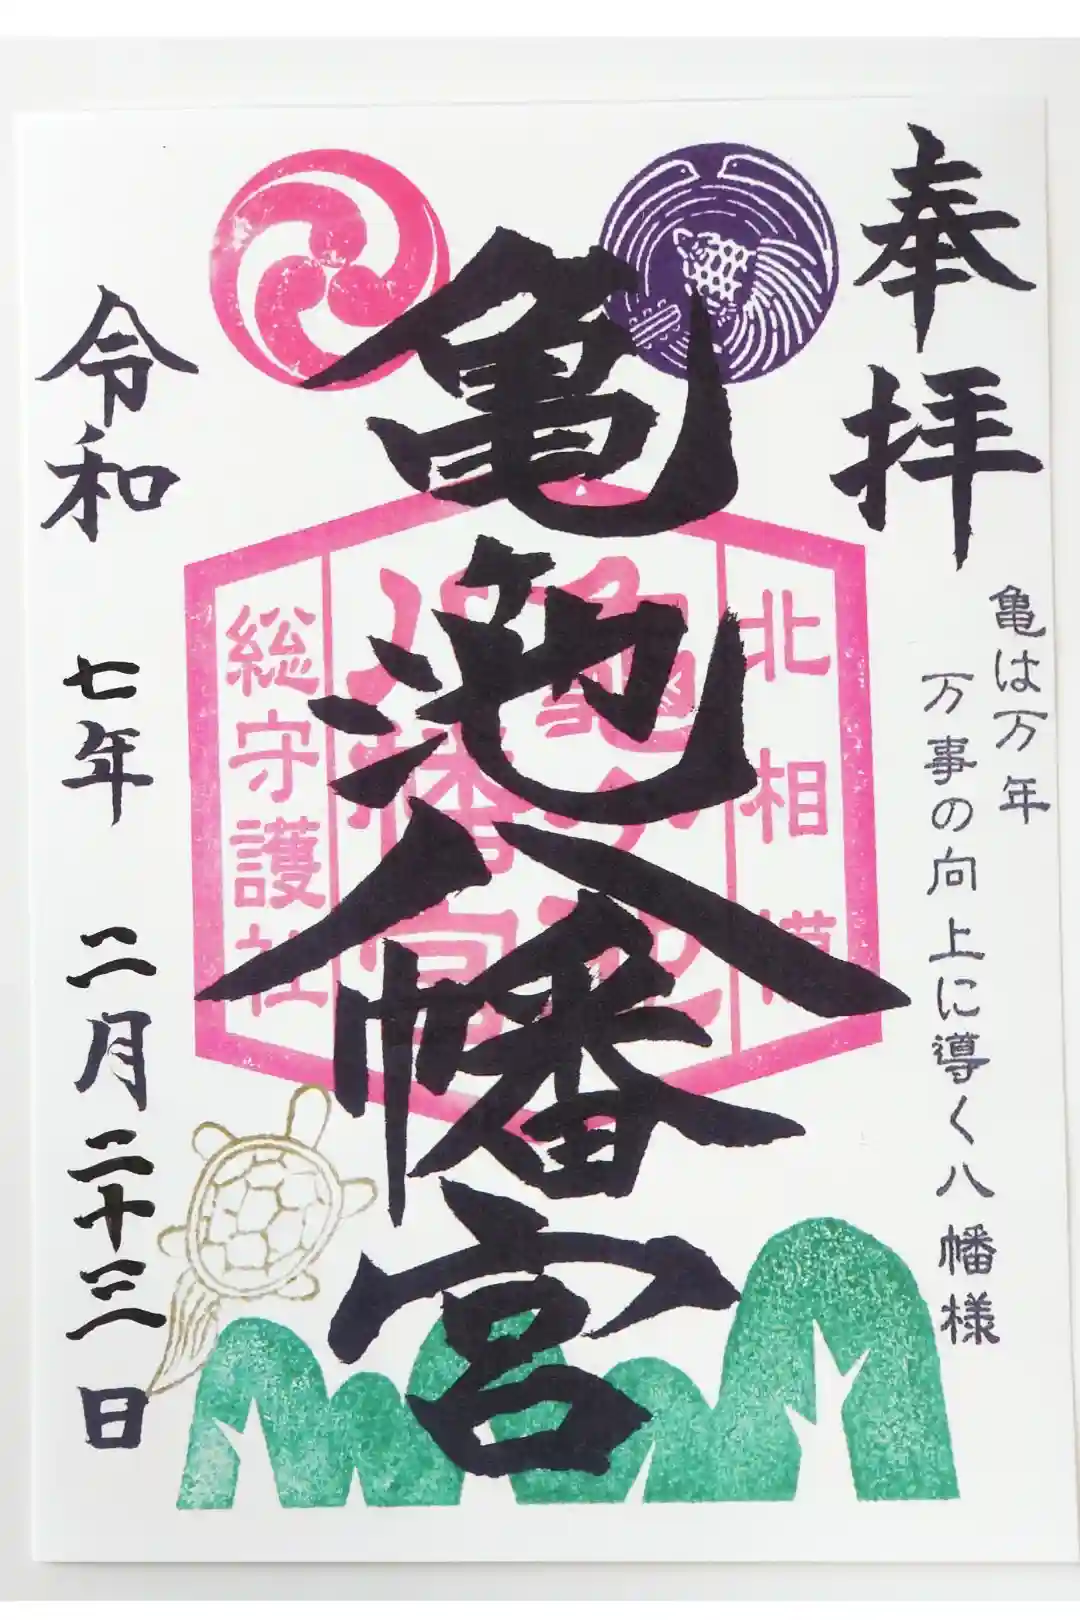 奉拝
亀は万年
万事の向上に導く八幡様
亀池八幡宮
北相模
亀ヶ池
八幡宮
総守護社
令和七年二月二十三日